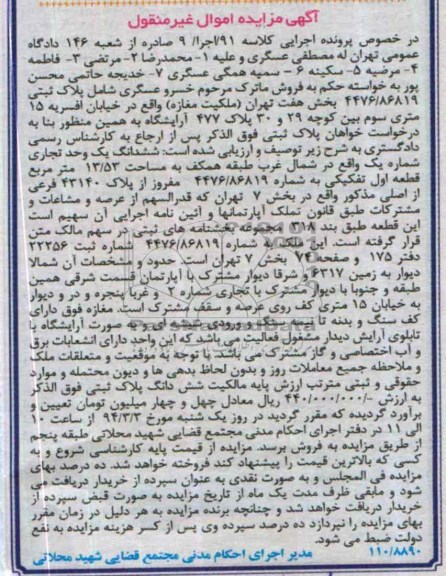 آگهی مزایده اموال غیرمنقول
در خصوص پرونده اجرایی کلاسه ۹۱/اجرا/ ۹ صادره از شعبه ۱۴۶ دادگاه
عمومی تهران له مصطفی عسگری و علیه ۱- محمدرضا ۲- مرتضی ۳- فاطمه
۴- مرضیه ۵- سکینه ۶ - سمیه همگی عسگری ۷- خدیجه حاتمی محسن
پور به خواسته حکم به فروش ماترک مرحوم خسرو عسگری شامل پلاک ثبتی
۴۴۷۶/۸۶۸۱۹ بخش هفت تهران (ملکیت مغازه) واقع در خیابان افسریه ۱۵
متری سوم بین کوچه ۲۹ و ۳۰ پلاک ۴۷۷ آرایشگاه به همین منظور بنا به
درخواست خواهان پلاک ثبتی فوق الذکر پس از ارجاع به کارشناس رسمی
دادگستری به شرح زیر توصیف و ارزیابی شده است: ششدانگ یک واحد تجاری
شماره یک واقع در شمال غرب طبقه همکف به مساحت ۱۳/۵۳ متر مربع
قطعه اول تفکیکی به شماره ۴۴۷۶/۸۶۸۱۹ مفروز از پلاک ۴۳۱۴۰ فرعی
از اصلی مذکور واقع در بخش ۷ تهران که قدرالسهم از عرصه و مشاعات و
مشترکات طبق قانون تملک آپارتمانها و آئین نامه اجرایی آن سهیم است
این قطعه طبق بند ۲۱۸ مجموعه بخشنامه های ثبتی در سهم مالک متن
قرار گرفته است. این ملک به شماره ۴۴۷۶/۸۶۸۱۹ شماره ثبت ۲۲۲۵۶
دفتر ۱۷۵ و صفحه ۷۴ بخش ۷ تهران است. حدود و مشخصات آن شمالا
دیوار به زمین ۶۳۱۷ و شرقا دیوار مشترک با آپارتمان قسمت شرقی همین
طبقه و جنوبا با دیوار مشترک با تجاری شماره ۲ و غربا پنجره و در و دیوار
به خیابان ۱۵ متری کف روی عرصه و سقف مشترک است. مغازه فوق دارای
کف سنگ و بدنه تا سقف سنگ و ورودی شیشه و به صورت آرایشگاه با
تابلوی آرایش دیدار مشغول فعالیت می باشد که این واحد دارای انشعابات برق
و آب اختصاصی و گاز مشترک می باشد. با توجه به موقعیت و متعلقات ملک
و ملاحظه جمیع معاملات روز و بدون لحاظ بدهی ها و دیون محتمله و موارد
حقوقی و ثبتی مترتب ارزش پایه مالکیت شش دانگ پلاک ثبتی فوق الذکر
به ارزش /۴۴۰/۰۰۰/۰۰۰ ریال معادل چهل و چهار میلیون تومان تعیین و
برآورد گردیده که مقرر گردید در روز یک شنبه مورخ ۹۴/۳/۳ از ساعت ۱۰
الی ۱۱ در دفتر اجرای احکام مدنی مجتمع قضایی شهید محلاتی طبقه پنجم
از طریق مزایده به فروش برسد. مزایده از قیمت پایه کارشناسی شروع و به
کسی که بالاترین قیمت را پیشنهاد کند فروخته خواهد شد. ده درصد بهای
مزایده فی المجلس و به صورت نقدی به عنوان سپرده از خریدار دریافت می
شود و مابقی ظرف مدت یک ماه از تاریخ مزایده به صورت قبض سپرده از
خریدار دریافت خواهد شد و چنانچه برنده مزایده به هر دلیل در زمان مقرر
بهای مزایده را نپردازد ده درصد سپرده وی پس از کسر هزینه مزایده به نفع
دولت ضبط می شود.
۱۱۰/۸۸۹۰ مدیر اجرای احکام مدنی مجتمع قضایی شهید محلاتی